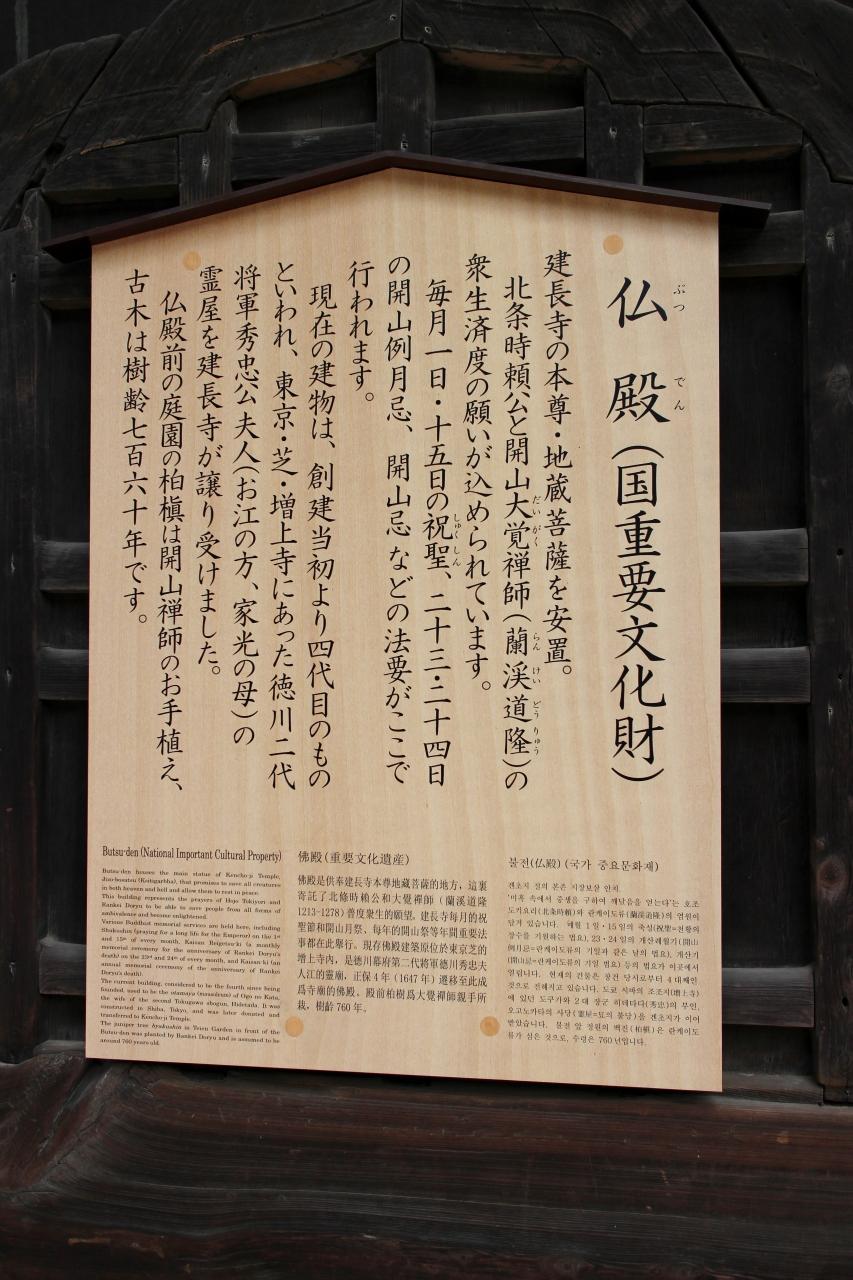 仏殿（国重要文化財）
ぶつ でん
建長寺の本尊・地蔵菩薩を安置。
北条時頼公と開山大覚禅師（蘭渓道隆）の
だい がく
らん けい どう りゅう
衆生済度の願いが込められています。
毎月一日・十五日の祝聖、二十三・二十四日
しゅく しん
の開山例月忌、開山忌などの法要がここで
行われます。
現在の建物は、創建当初より四代目のもの
といわれ、東京・芝・増上寺にあった徳川二代
将軍秀忠公夫人（お江の方、家光の母）の
霊屋を建長寺が譲り受けました。
仏殿前の庭園の柏槇は開山禅師のお手植え、
古木は樹齢七百六十年です。
Butsu-den (National Important Cultural Property)
Butsu-den houses the main statue of Kencho-ji Temple,
Jizo-bosatsu (Ksitigarbha), that promises to save all creatures
in both heaven and hell and allow them to rest in peace.
This building represents the prayers of Hojo Tokiyori and
Rankei Doryu to be able to save people from all forms of
ambivalence and become enlightened.
Various Buddhist memorial services are held here, including
Shukushin (praying for a long life for the Emperor) on the 1st
and 15th of every month, Kaisan Reigetsu-ki (a monthly
memorial ceremony for the anniversary of Rankei Doryu's
death) on the 23rd and 24th of every month, and Kaisan-ki (an
annual memorial ceremony of the anniversary of Rankei
Doryu's death).
The current building, considered to be the fourth since being
founded, used to be the otamaya (mausoleum) of Ogo no Kata,
the wife of the second Tokugawa shogun, Hidetada. It was
constructed in Shiba, Tokyo, and was later donated and
transferred to Kencho-ji Temple.
The juniper tree byakushin in Teien Garden in front of the
Butsu-den was planted by Rankei Doryu and is assumed to be
around 760 years old.
佛殿（重要文化遺産）
佛殿是供奉建長寺本尊地藏菩薩的地方，這裏
寄託了北條時賴公和大覺禪師（蘭溪道隆
1213-1278）普度衆生的願望。建長寺每月的祝
聖節和開山月祭、每年的開山祭等年間重要法
事都在此舉行。現存佛殿建築原位於東京芝的
增上寺內，是德川幕府第二代將軍德川秀忠夫
人江的靈廟。正保4年（1647年）遷移至此成
爲寺廟的佛殿。殿前柏樹爲大覺禪師親手所
栽，樹齡760年。
불전(仏殿) (국가 중요문화재)
겐초지 절의 본존 지장보살 안치.
'미혹 속에서 중생을 구하여 깨달음을 얻는다'는 호조
도키요리(北条時頼)와 란케이도류(蘭渓道隆)의 염원이
담겨 있습니다. 매월 1일・15일의 축성(祝聖=천황의
장수를 기원하는 법요), 23・24일의 개산례월기(開山
例月忌=란케이도류의 기일과 같은 날의 법요), 개산기
(開山忌=란케이도류의 기일 법요) 등의 법요가 이곳에서
열립니다. 현재의 건물은 창건 당시로부터 4대째인
것으로 전해지고 있습니다. 도쿄 시바의 조조지(増上寺)
에 있던 도쿠가와 2대 장군 히데타다(秀忠)의 부인,
오고노카타의 사당(霊屋=묘의 불당)을 겐초지가 이어
받았습니다. 불전 앞 정원의 백진(柏槇)은 란케이도
류가 심은 것으로, 수령은 760년입니다.